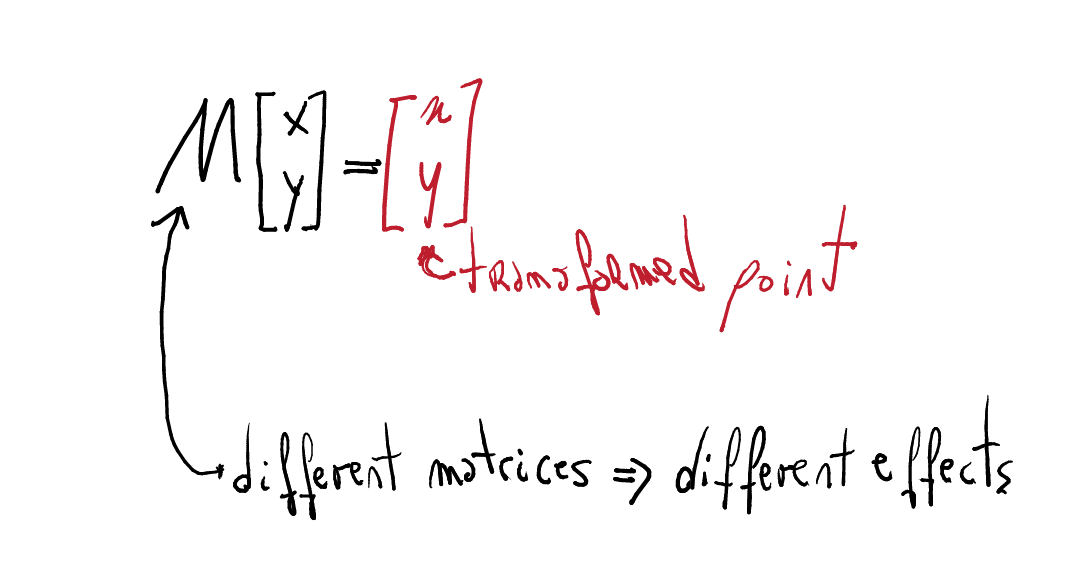 M [x y] = [x y]
transformed point
different matrices ⇒ different effects